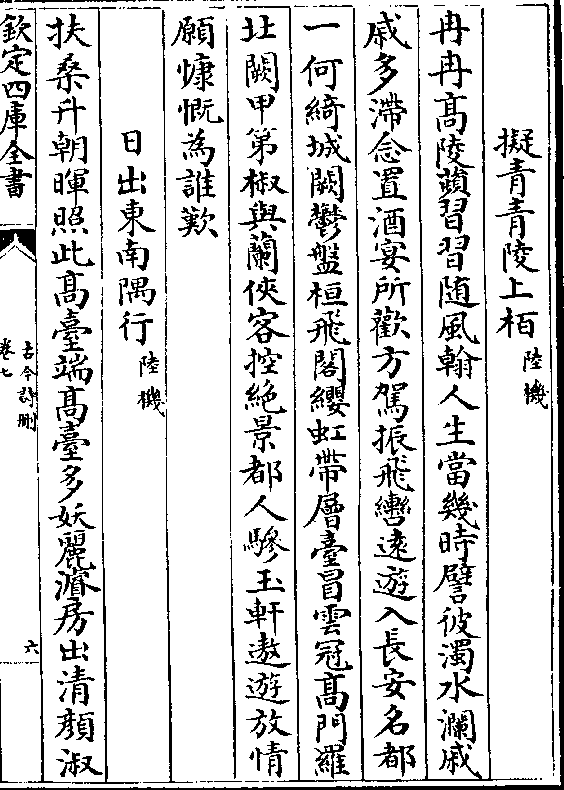 擬青青陵上栢 陸機
冉冉髙陵蘋習習随風翰人生當幾時譬彼濁水瀾戚
戚多滯念置酒宴所歡方駕振飛轡逺遊入長安名都
一何綺城闕鬱盤桓飛閣纓虹帶層臺冒雲冠髙門羅
北闕甲第椒與蘭俠客控絶景都人驂玉軒遨遊放情
願慷慨為誰歎
日出東南隅行 陸機
扶桑升朝暉照此髙臺端髙臺多妖麗濬房出清顔淑
欽定四庫全書
古今詩刪
卷七
六